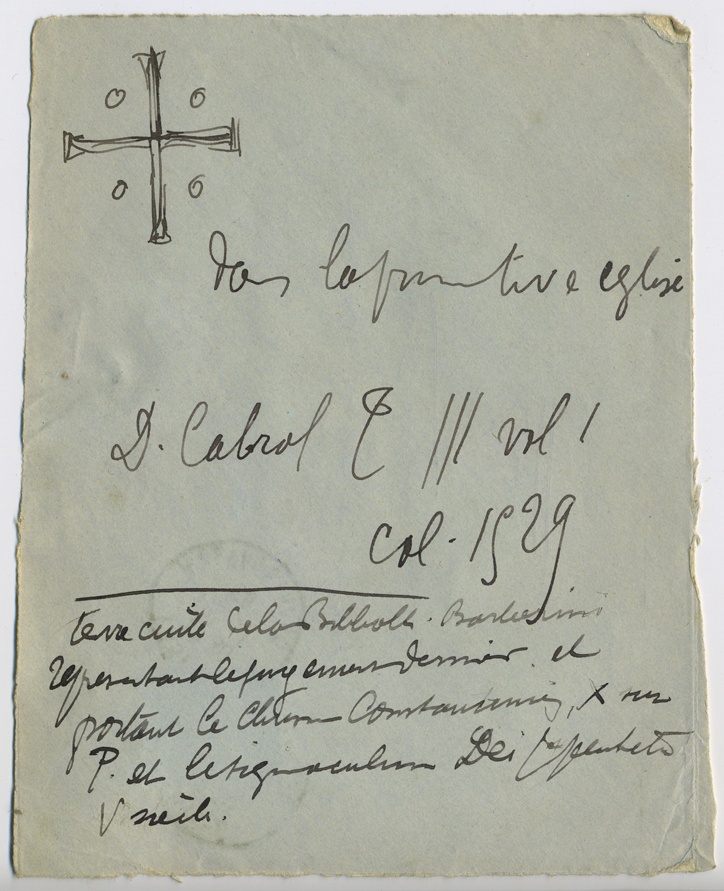 dans la primitive eglise
D. Cabrol T III vol 1
col. 1529
terre cuite de la Biblioth. Barberini
representant le jugement dernier et
portant le Chrisme Constantinien, X sur
P. et le signaculum Dei
V siècle.